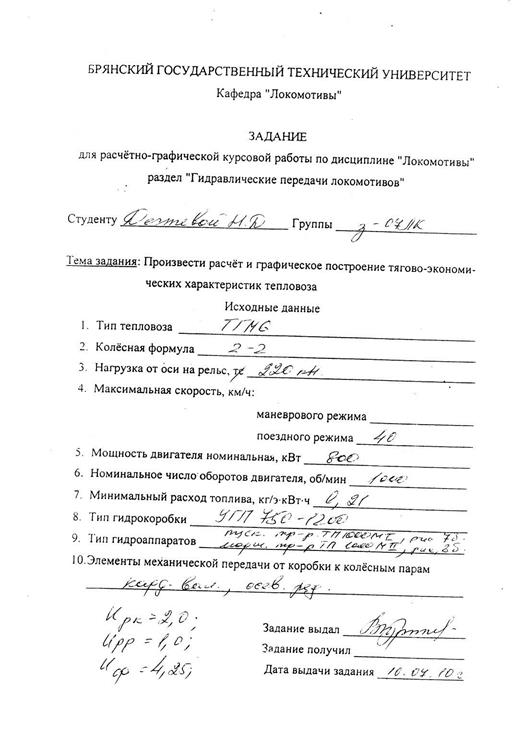 БРЯНСКИЙ ГОСУДАРСТВЕННЫЙ ТЕХНИЧЕСКИЙ УНИВЕРСИТЕТ
Кафедра "Локомотивы"
ЗАДАНИЕ
для расчётно-графической курсовой работы по дисциплине "Локомотивы"
раздел "Гидравлические передачи локомотивов"
Студенту Н.Д Группы з-07ЛК
Тема задания: Произвести расчёт и графическое построение тягово-экономи-
ческих характеристик тепловоза
Исходные данные
1. Тип тепловоза ТГМ6
2. Колёсная формула 2-2
3. Нагрузка от оси на рельс, 220 кН
4. Максимальная скорость, км/ч:
маневрового режима
поездного режима 40
5. Мощность двигателя номинальная, кВт 800
6. Номинальное число оборотов двигателя, об/мин 1000
7. Минимальный расход топлива, кг/э·кВт·ч 0,21
8. Тип гидрокоробки УГП 750-1200
9. Тип гидроаппаратов пуск. тр-р ТП1000МI, рис
марш. тр-р ТП 1000МII, рис,
10.Элементы механической передачи от коробки к колёсным парам
кард. вал., осев. ред.
Uрк = 2,0;
Uрр = 1,0;
= 4,25;
Задание выдал
Задание получил
Дата выдачи задания 10.04.10